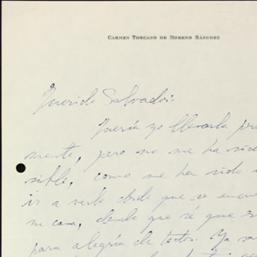 CARMEN TOSCANO DE MORENO SÁNCHEZ
Querido Salvador:
Quería yo llevarla
mente, pero no me ha
sible, como me ha sido
ir a verlo desde que se
mi casa, desde que sé que
para alegría de todos. Ya